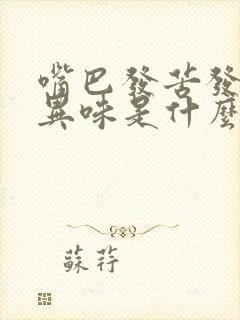 嘴巴發苦發
異味是什麼
蘇荇